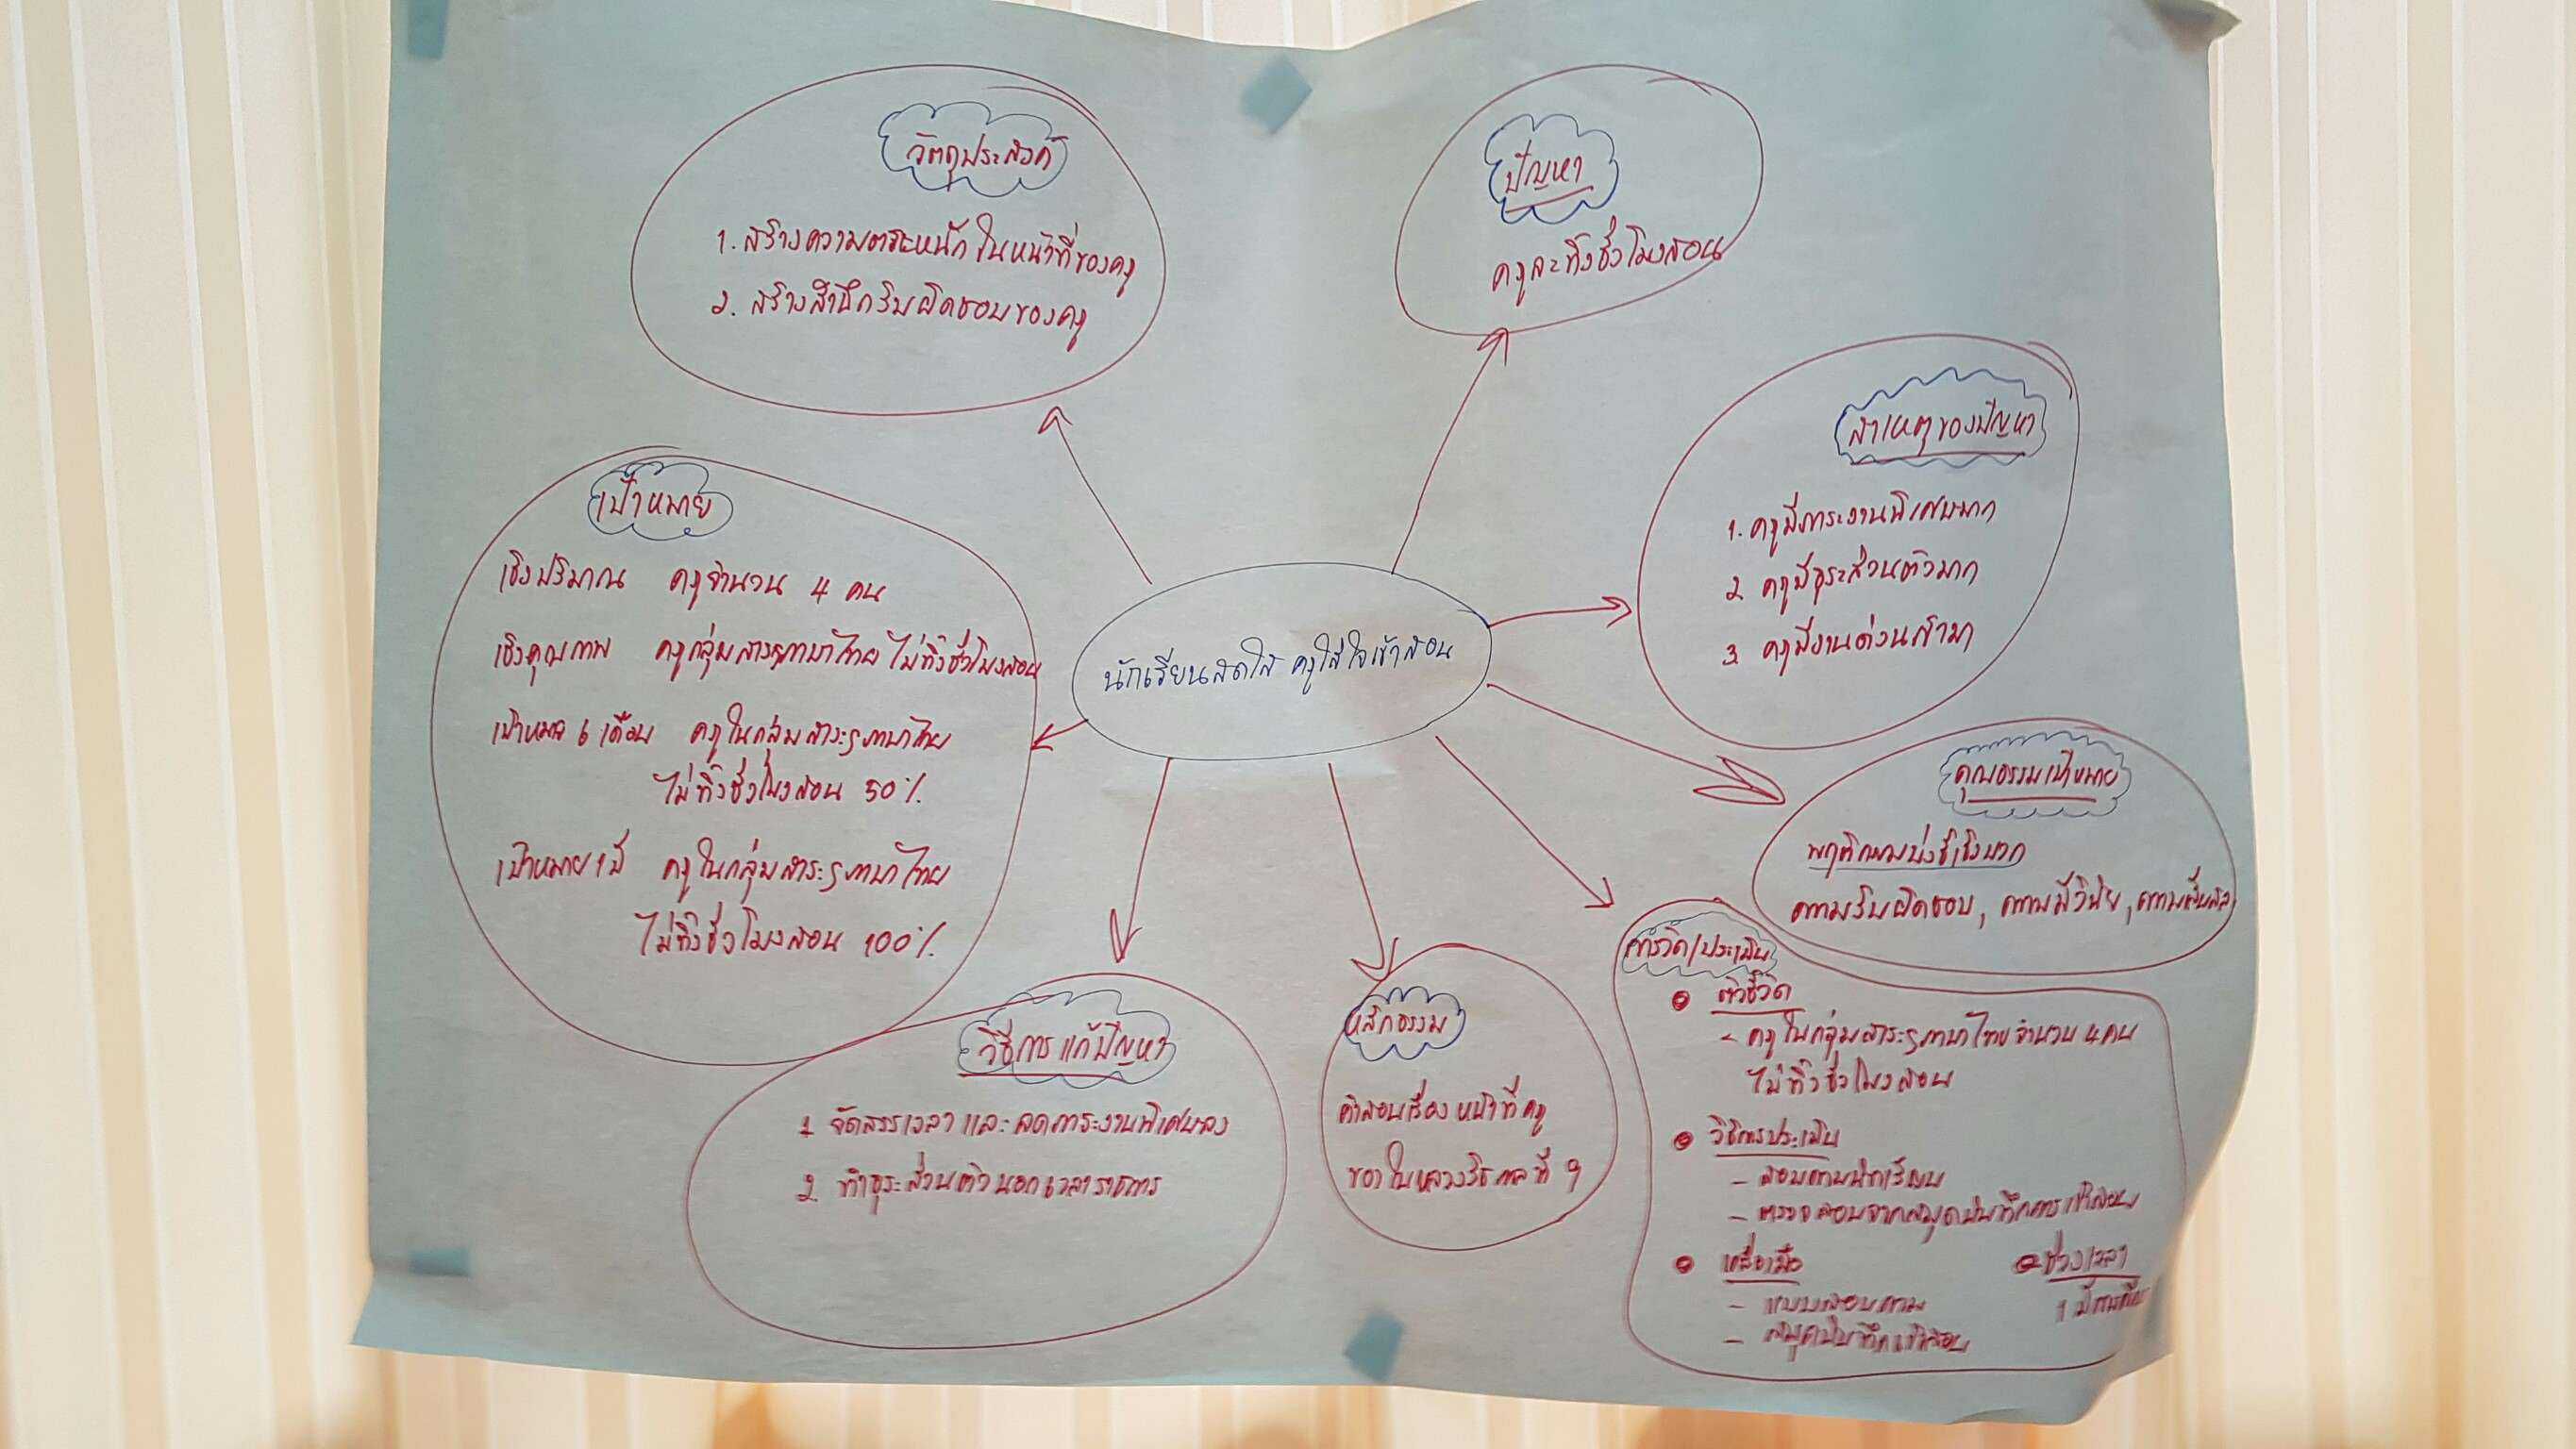 วัตถุประสงค์
1. สร้างความตระหนักในหน้าที่ของครู
2. สร้างสำนึกรับผิดชอบของครู
ปัญหา
ครูละทิ้งชั่วโมงสอน
สาเหตุของปัญหา
1. ครูมีภาระงานพิเศษมาก
2. ครูมีธุระส่วนตัวมาก
3. ครูมีงานด่วนเข้ามา
เป้าหมาย
เชิงปริมาณ ครูจำนวน 4 คน
เชิงคุณภาพ ครูกลุ่มสาระภาษาไทย ไม่ทิ้งชั่วโมงสอน
เป้าหมาย 6 เดือน ครูในกลุ่มสาระฯภาษาไทย
ไม่ทิ้งชั่วโมงสอน 50%
เป้าหมาย 1 ปี ครูในกลุ่มสาระฯภาษาไทย
ไม่ทิ้งชั่วโมงสอน 100%
นักเรียนสดใส ครูใส่ใจเข้าสอน
คุณธรรมเป้าหมาย
พฤติกรรมบ่งชี้เชิงบวก
ความรับผิดชอบ, ความมีวินัย,
วิธีการแก้ปัญหา
1. จัดสรรเวลา และลดภาระงานพิเศษลง
2. ทำธุระส่วนตัวนอกเวลาราชการ
หลักธรรม
คำสอนเรื่อง หน้าที่ครู
ของในหลวงรัชกาลที่ 9
การวัด/ประเมิน
• ตัวชี้วัด
- ครูในกลุ่มสาระฯภาษาไทย จำนวน 4 คน
ไม่ทิ้งชั่วโมงสอน
• วิธีการประเมิน
- สอบถามนักเรียน
- ตรวจสอบจากสมุดบันทึกการเข้าสอน
• เครื่องมือ
- แบบสอบถาม
- สมุดบันทึกเข้าสอน
• ช่วงเวลา
1 ปีการศึกษา